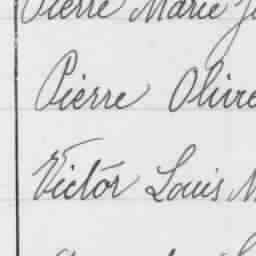 Pierre Marie
Pierre Olive
Victor Louis